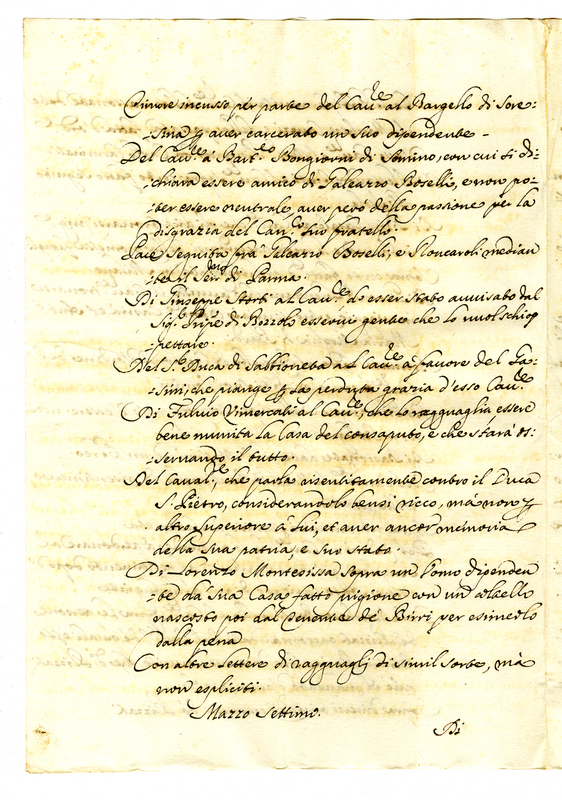 Timore incusso per parte del Cav.re al Bargello di Sore=
=sina p aver carcerato un suo dipendente -
Del Cav.re à Bart.eo Bongiorni di Sonino, con cui si di=
=chiara essere amico di Galeazzo Boselli, e non po=
=ter essere neutrale, aver però della passione per la
disgrazia del Can.co suo fratello.
Pace seguita frà Galeazzo Boselli, e Roncaroli median
te il Ser.mo di Parma.
Di Giuseppe Storti al Cav.re do esser stato avvisato dal
Sig.r Prñpe di Bozzolo esservi gente che lo vuol schiop
pettare.
Del S.r Duca di Sabbioneta al Cav.re à favore del
sini, che piange p la perduta grazia d'esso Cav.re
Di Fulvio Vimercati al Cav.re, che lo ragguaglia essere
bene munita la Casa del consaputo, e che starà os=
servando il tutto.
Del Caval.re, che parla risentitamente contro il Duca
S. Pietro, considerandolo bensi ricco, mà non p
altro superiore à lui, et aver ancor memoria
della sua patria, e suo stato.
Di Lorenzo Montesissa sopra un homo dipenden
te da sua Casa fatto prigione con un coltello
nascosto poi dal Tenente de Birri per esimerlo
dalla pena
Con altre lettere di ragguagli di simil sorte, mà
non espliciti.
Mazzo Settimo.
Di